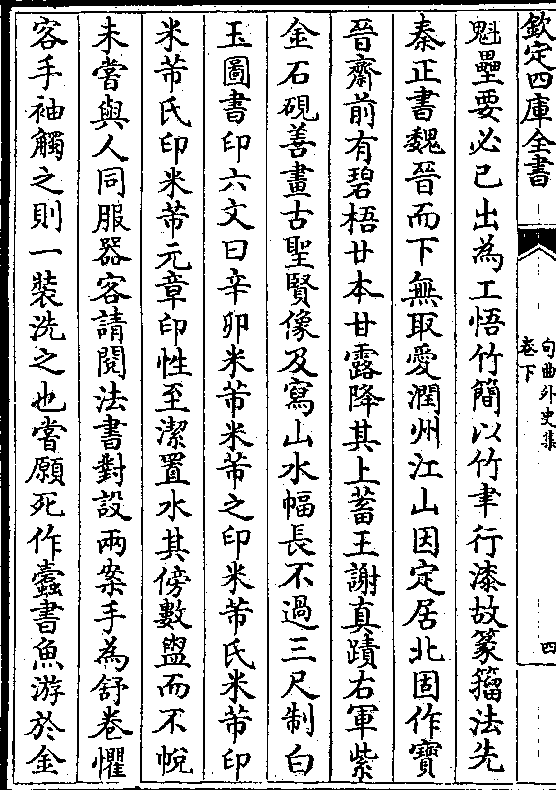 欽定四庫全書
句曲外史集
卷下
四
魁壘要必已出為工悟竹簡以竹聿行漆故篆籀法先
秦正書魏晉而下無取愛潤州江山因定居北固作寶
晉齋前有碧梧廿本甘露降其上蓄王謝真蹟右軍紫
金石硯善畫古聖賢像及寫山水幅長不過三尺制白
玉圖書印六文曰辛卯米芾米芾之印米芾氏米芾印
米芾氏印米芾元章印性至潔置水其傍數盥而不帨
未嘗與人同服器客請閱法書對設兩案手為舒卷懼
客手袖觸之則一裝洗之也嘗願死作蠹書魚游於金